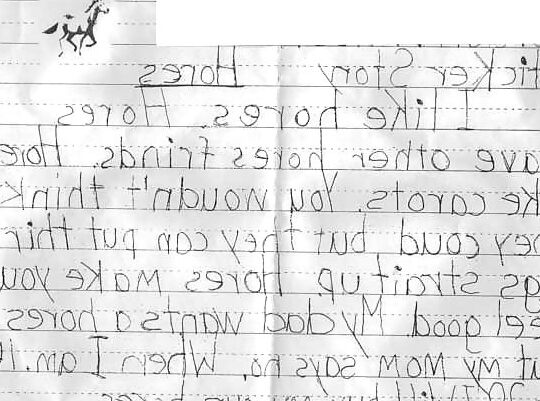 ticker Story Hores
I like hores. Hores
ave other hores frinds. Hore
ke carots. You woudn't think
ey coud, but they can put thir
gs strait up. Hores make you
eel good. My dad wants a hores
ut my mom says no. When I am